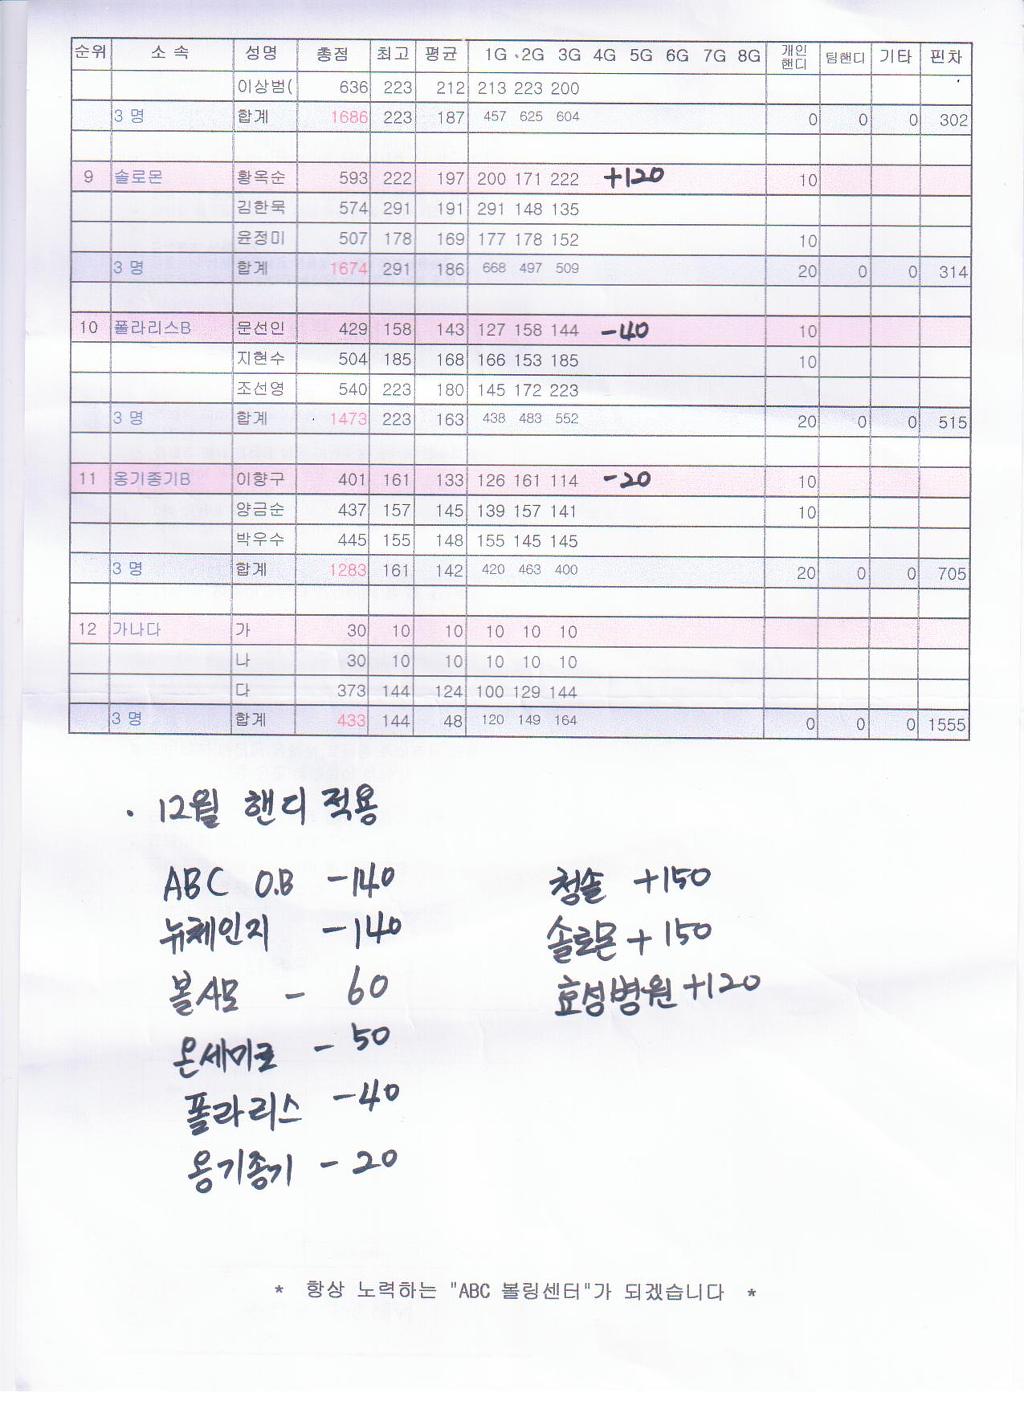 순위 소 속 성명 총점 최고 평균 1G 2G 3G 4G 5G 6G 7G 8G 개인핸디 팀핸디 기타 핀차
이상범( 636 223 212 213 223 200
3 명 합계 1686 223 187 457 625 604 0 0 0 302
9 솔로몬 황옥순 593 222 197 200 171 222 +120 10
김한묵 574 291 191 291 148 135
윤정미 507 178 169 177 178 152 10
3 명 합계 1674 291 186 668 497 509 20 0 0 314
10 폴라리스B 문선인 429 158 143 127 158 144 -40 10
지현수 504 185 168 166 153 185 10
조선영 540 223 180 145 172 223
3 명 합계 1473 223 163 438 483 552 20 0 0 515
11 옹기종기B 이향구 401 161 133 126 161 114 -20 10
양금순 437 157 145 139 157 141 10
박우수 445 155 148 155 145 145
3 명 합계 1283 161 142 420 463 400 20 0 0 705
12 가나다 가 30 10 10 10 10 10
나 30 10 10 10 10 10
다 373 144 124 100 129 144
3 명 합계 433 144 48 120 149 164 0 0 0 1555
· 12월 핸디 적용
ABC O.B -140
뉴체인지 -140
볼사모 - 60
온세미로 - 50
폴라리스 -40
옹기종기 - 20
청솔 +150
솔로몬 + 150
효성병원 +120
* 항상 노력하는 "ABC 볼링센터"가 되겠습니다 *